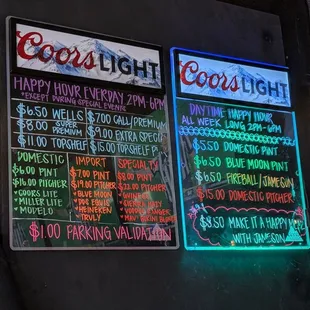 Coors LIGHT
HAPPY HOUR EVERYDAY 2PM-6PM
*EXCEPT DURING SPECIAL EVENTS
$6.50 WELLS
$8.00 SUPER PREMIUM
$11.00 TOPSHELF
$7.00 CALL/PREMIUM
$9.00 EXTRA SPECIAL
$15.00 TOPSHELF
DOMESTIC
$6.00 PINT
$16.00 PITCHER
COORS LITE
MILLER LITE
MODELO
IMPORT
$7.00 PINT
$19.00 PITCHER
BLUE MOON
DOS EQUIS
HEINEKEN
TRULY
SPECIALTY
$8.00 PINT
$22.00 PITCHER
VOODOO RANGER
$1.00 PARKING VALIDATION
Coors LIGHT
DAYTIME HAPPY HOUR
ALL WEEK LONG 2PM-6PM
$5.50 DOMESTIC PINT
$6.50 BLUE MOON PINT
$6.50 FIREBALL/JAMESON
$15.00 DOMESTIC PITCHER
$8.50 MAKE IT A HAPPY
WITH JAMESON